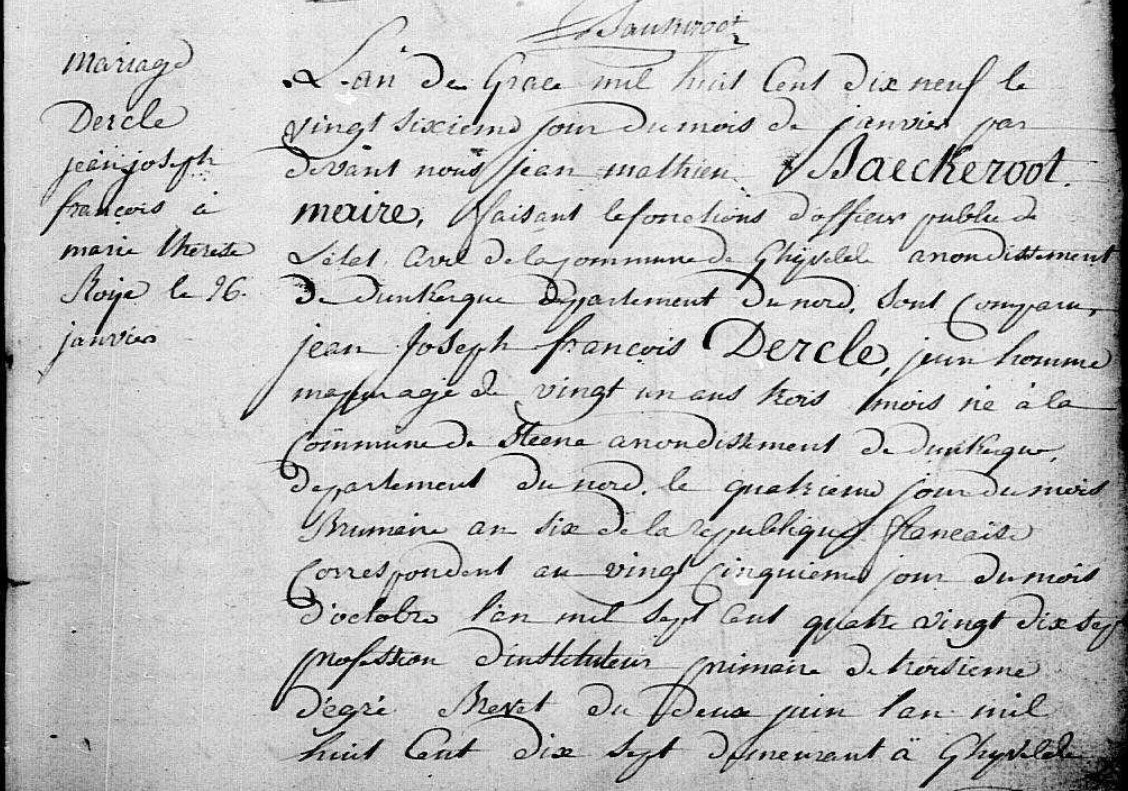 Baeckeroot
mariage
Dercle
jean joseph
françois à
marie therese
Roye le 26.
janvier
L'an de Grace mil huit Cent dix neuf le
vingt sixieme jour du mois de janvier par
devant nous jean mathieu Baeckeroot.
maire, faisant le fonctions d'officier public de
L'état Civil de la Commune de Ghyvelde arrondissement
de dunkerque departement du nord, sont Comparu,
jean Joseph françois Dercle, jeun homme
majeur agé de vingt un ans trois mois né à la
Commune de Steene arrondissement de dunkerque,
departement du nord. le quatrieme jour du mois
Brumaire an six de la republique française
Correspondent au vingt Cinquieme jour du mois
d'octobre l'an mil sept Cent quatre vingt dix sept
profession d'instituteur primaire de troisieme
dégré Brevet du deux juin l'an mil
huit Cent dix sept demeurant à Ghyvelde